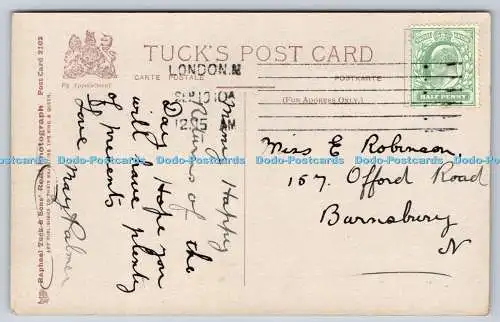 TUCK'S POST CARD
CARTE POSTALE
POSTKARTE
(FOR ADDRESS ONLY.)
By Appointment
LONDON.N
SEP 10 10A
12.15 AM
HALF PENNY
Many Happy
Returns of the
Day Hope you
will have plenty
of presents
Love May Palmer
Miss E Robinson,
157. Offord Road
Barnsbury
N
Raphael Tuck & Sons' Real Photograph Post Card 2102
Dodo-Postcards Dodo-Postcards Dodo-Postcards Dodo-Postcards Dodo-Postcards Dodo-Postcards